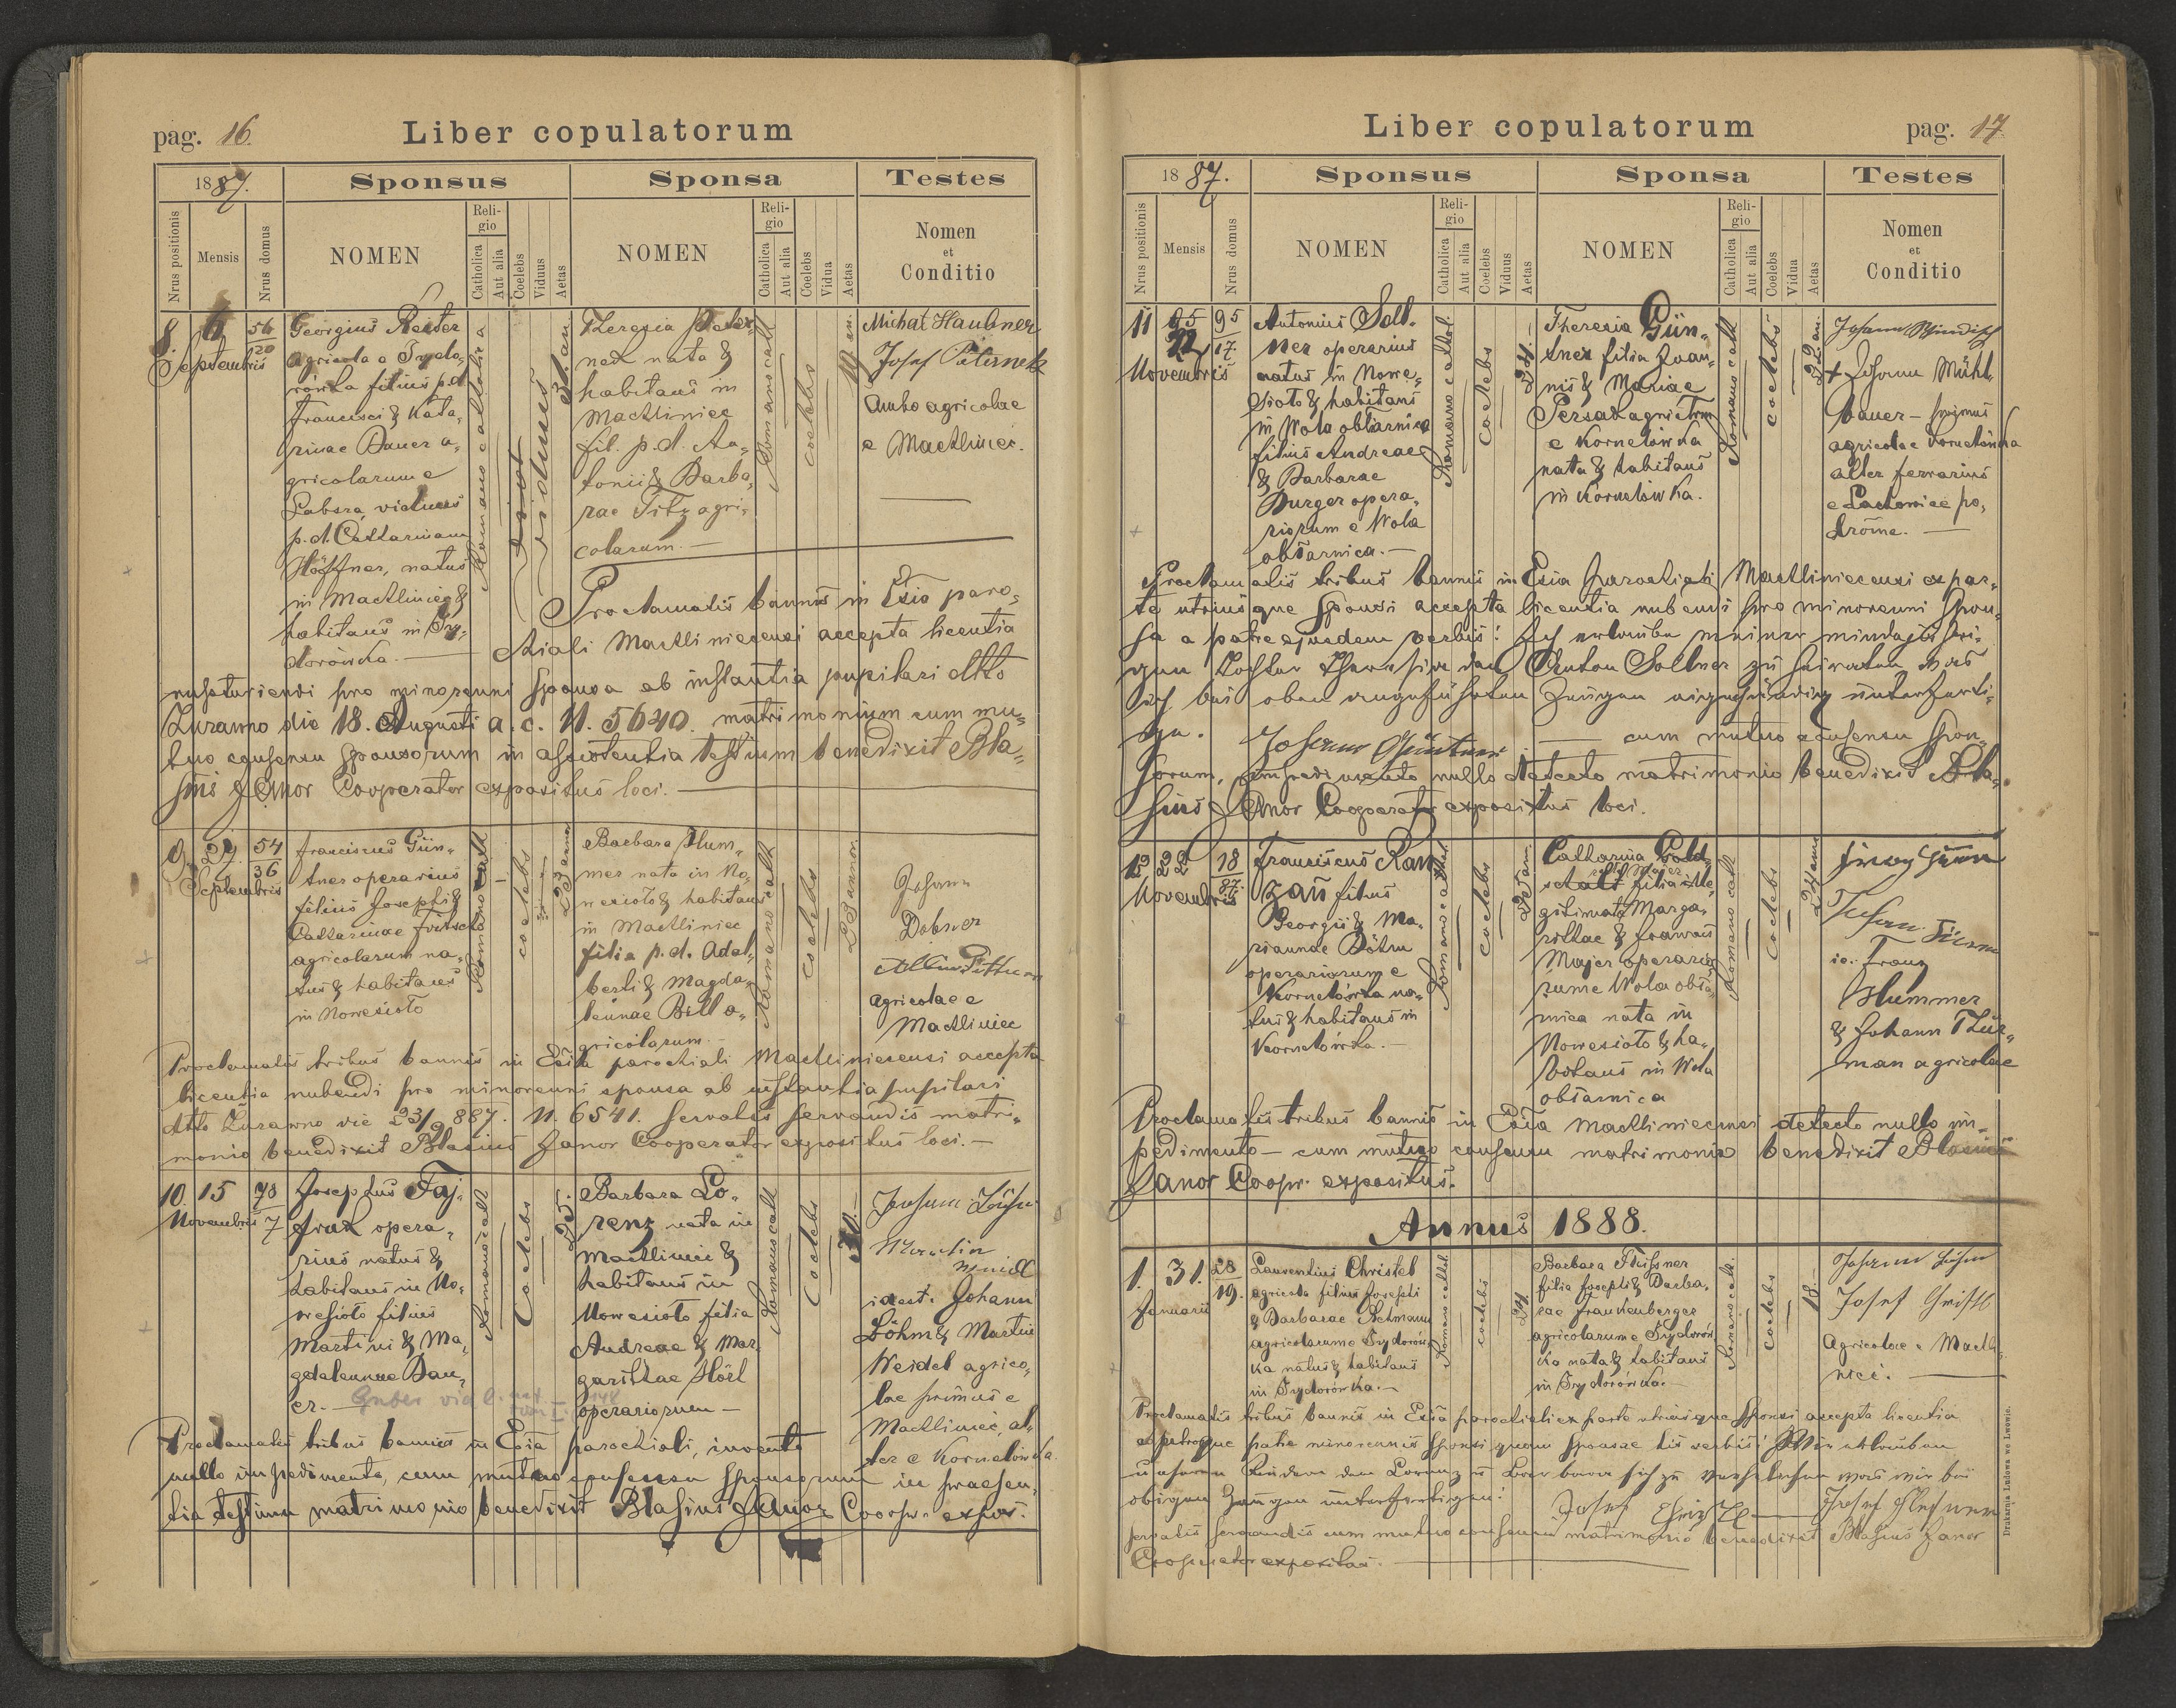 pag. 16.
Liber copulatorum
1887.
Sponsus
Sponsa
Testes
Nrus positionis
Mensis
Nrus domus
NOMEN
Religio
Catholica
Aut alia
Coelebs
Viduus
Aetas
NOMEN
Religio
Catholica
Aut alia
Coelebs
Vidua
Aetas
Nomen
et
Conditio
8.
6
Septembris
56
20
Georgius Reiter
agricola e Tydo„
rówka filius p.d.
Francisci & Kata„
rinae Bauer a„
gricolarum e
viduus
p.d. Catharinam
Höffner, natus
in Machliniec &
habitans in Ty„
dorówka. —
Romano catholica
viduus
31. an
Theresia Peter„
nek nata &
habitans in
Machliniec
fil. p.d. An„
tonii & Barba„
rae Titz agri„
colarum. —
Romano cath
coelebs
Michal Haubner
Josef Peternek
Ambo agricolae
e Machliniec.
Proclamatis bannis in Ecsia paro„
chiali Machliniecensi accepta licentia
pro minorenni sponsa ab instantia pupilari dtto
Zurawno die 18. Augusti a.c. N. 5640. matrimonium cum mu„
tuo consensu sponsorum in assistentia testium benedixit Bla„
sius Janor Cooperator expositus loci. —
9.
29.
Septembris
54
36
Franciscus Gün„
tner operarius
filius Josephi &
Catharinae Fritsch
agricolarum na„
tus & habitans
in Nowesioło
Romano cath
coelebs
23 annor
Barbara Hum„
mer nata in No„
wesioło & habitans
in Machliniec
filia p.d. Adal„
berti & Magda„
lennae Bill a„
gricolarum. —
Romano cath
coelebs
23 annor
Johann
Dobner
agricolae e
Machliniec
Proclamatis tribus bannis in Ecsia parochiali Machliniecensi accepta
licentia nubendi pro minorenni sponsa ab instantia pupilari
dtto Zurawno die 23/9 887. N. 6541. servatis servandis matri„
monio benedixit Blasius Janor Cooperator expositus loci. —
10.
15
Novembris
78
7
Josephus Faj„
frak opera„
rius natus &
habitans in No„
wesioło filius
Martini & Ma„
gdalennae Bau„
er. —
Romano cath
Coelebs
25.
Barbara Lo„
renz nata in
Machliniec &
habitans in
Nowesioło filia
Andreae & Mar„
garithae Hörl
operariorum —
Romano cath
Coelebs
30.
id est. Johann
Böhm & Martin
Weidel agrico„
lae primus e
Machliniec, al„
ter e Kornelówka
Proclamatis tribus bannis in Ecsia parochiali, invento
nullo impedimento, cum mutuo consensu sponsorum in praesen„
tia testium matrimonio benedixit Blasius Janor Coopr. expos.
Liber copulatorum
pag. 17.
1887.
Sponsus
Sponsa
Testes
Nrus positionis
Mensis
Nrus domus
NOMEN
Religio
Catholica
Aut alia
Coelebs
Viduus
Aetas
NOMEN
Religio
Catholica
Aut alia
Coelebs
Vidua
Aetas
Nomen
et
Conditio
11
22
Novembris
95
17.
Antonius Solt„
ner operarius
natus in Nowe„
sioło & habitans
in Wola obłaznica
filius Andreae
& Barbarae
Burger opera„
riorum e Wola
obłaznica. —
Romano cathol.
Coelebs
24.
Theresia Gün„
tner filia Joan„
nis & Mariae
Persak agricolarum
e Kornelówka
nata & habitans
in Kornelówka.
Romano cath
coelebs
22 an.
Johann Windisch
+ Johann Mühl„
bauer — primus
agricola e Kornelówka
alter ferrarius
Proclamatis tribus bannis in Ecsia parochiali Machliniecensi ex par„
te utriusque sponsi accepta licentia nubendi pro minorenni spon„
sa a patre ejusdem verbis: Ich erlaube meiner minderjähri„
gen Tochter Theresia den Anton Soltner zu heiraten was
ich bei oben angeführten Zeugen eigenhändig unterferti„
ge. Johann Güntner — cum mutuo consensu spon„
sorum, impedimento nullo detecto matrimonio benedixit Bla„
sius Janor Cooperator expositus loci.
12
22
Novembris
18
87.
Franciscus Ran„
zan filius
Georgii & Ma„
riannae Böhm
operariorum e
Kornelówka na„
tus & habitans in
Kornelówka. —
Romano cathol.
coelebs
Catharina
filia ille„
gitimata Marga„
rithae & Joannis
Majer operario„
rum e Wola obła„
znica nata in
Nowesioło & ha„
bitans in Wola
obłaznica
Romano cath
coelebs
24 ann.
ie. Franz
Hummer
& Johann Thür„
man agricolae
Proclamatis tribus bannis in Ecsia Machliniecensi detecto nullo im„
pedimento — cum mutuo consensu matrimonio benedixit Blasius
Janor Coopr. expositus.
Annus 1888.
1.
31.
Januarii
28
19.
Laurentius Christel
agricola filius Josephi
& Barbarae Achmann
agricolarum e Tydorów„
ka natus & habitans
in Tydorówka. —
Romano cathol.
coelebs
24.
Barbara Fleissner
filia Josephi & Barba„
rae Frankenberger
agricolarum e Tydorów„
ka nata & habitans
in Tydorówka. —
Romano cath.
coelebs
18.
Agricolae e Machli„
niec. —
Proclamatis tribus bannis in Ecsia parochiali ex parte utriusque sponsi accepta licentia
ab utroque patre minorennis sponsi quam sponsae his verbis: Wir erlauben
unseren Kindern dem Lorenz u Barbara sich zu verehelichen was wir bei
obigen Zeugen unterfertigen: Josef Christl — Josef Fleissner
servatis servandis cum mutuo consensu matrimonio benedixit Blasius Janor
Cooperator expositus. —
Drukarnia Ludowa we Lwowie.